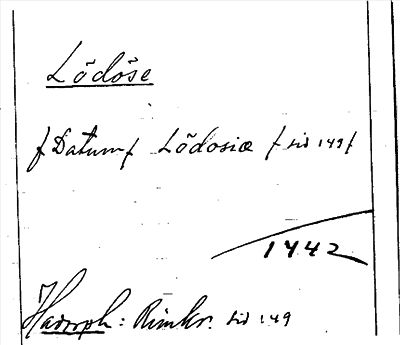 Lödöse
/Datum/ Lödosiæ /sid 149/
1442
Hadorph: Rimkr. sid 149